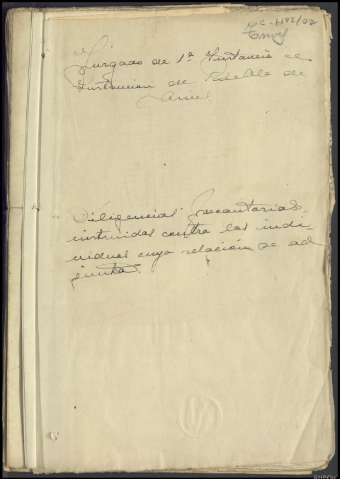 Juzgado de 1ª Instancia e
Instrucción de Puebla de
Diligencias precautorias
instruidas contra los indi-
viduos cuya relación se ad
junta.